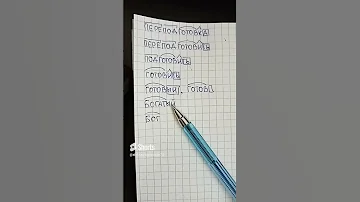 ПЕРЕПОДГОТОВКА
ПЕРЕПОДГОТОВИТЬ
ПОДГОТОВИТЬ
ГОТОВИТЬ
ГОТОВЫЙ, ГОТОВ
БОГАТЫЙ
БОГ
Shorts